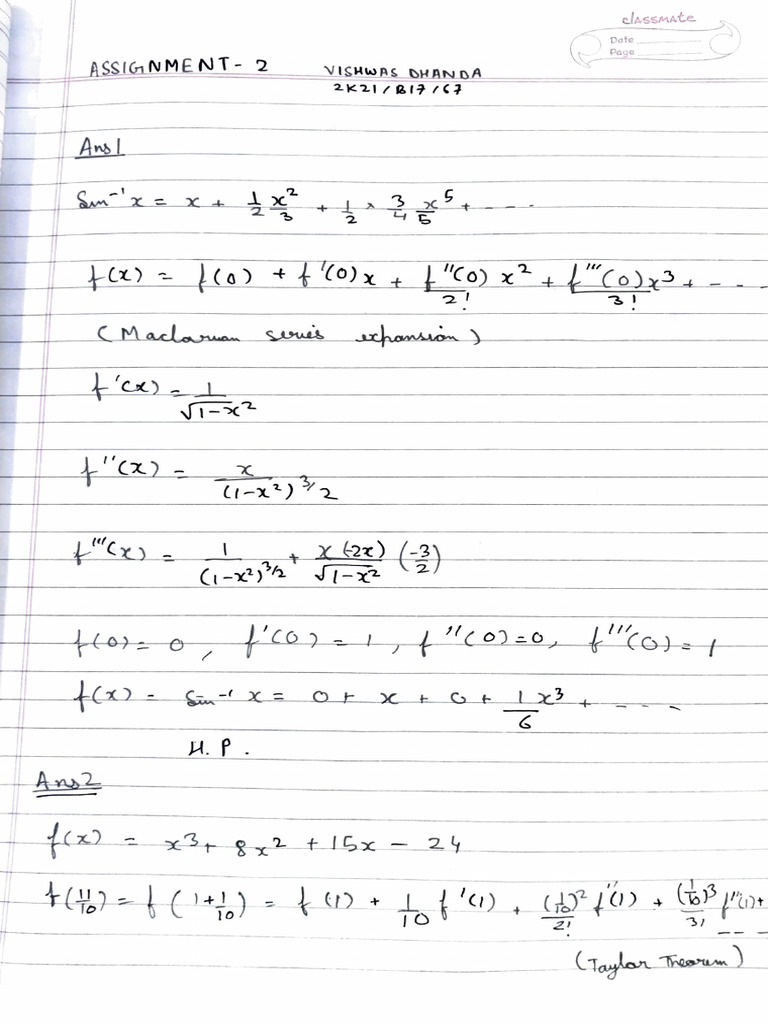 classmate
Date
Page
ASSIGNMENT - 2 VISHWAS DHANDA
2K21/B17/67
Ans1
Sin⁻¹x = x + 1/2 x²/3 + 1/2 × 3/4 x⁵/5 + - - - -
f(x) = f(0) + f'(0)x + f''(0)x²/2! + f'''(0)x³/3! + - - -
(Maclaruan series expansion)
f'(x) = 1/√(1-x²)
f''(x) = x/(1-x²)^3/2
f'''(x) = 1/(1-x²)^3/2 + x(-2x)/√(1-x²) (-3/2)
f(0) = 0, f'(0) = 1, f''(0)=0, f'''(0) = 1
f(x) = Sin⁻¹ x = 0 + x + 0 + 1/6 x³ + - - - -
H.P.
Ans2
f(x) = x³ + 8x² + 15x - 24
f(11/10) = f(1+1/10) = f(1) + 1/10 f'(1) + (1/10)²/2! f''(1) + (1/10)³/3! f'''(1) + - - -
(Taylor Theorem)